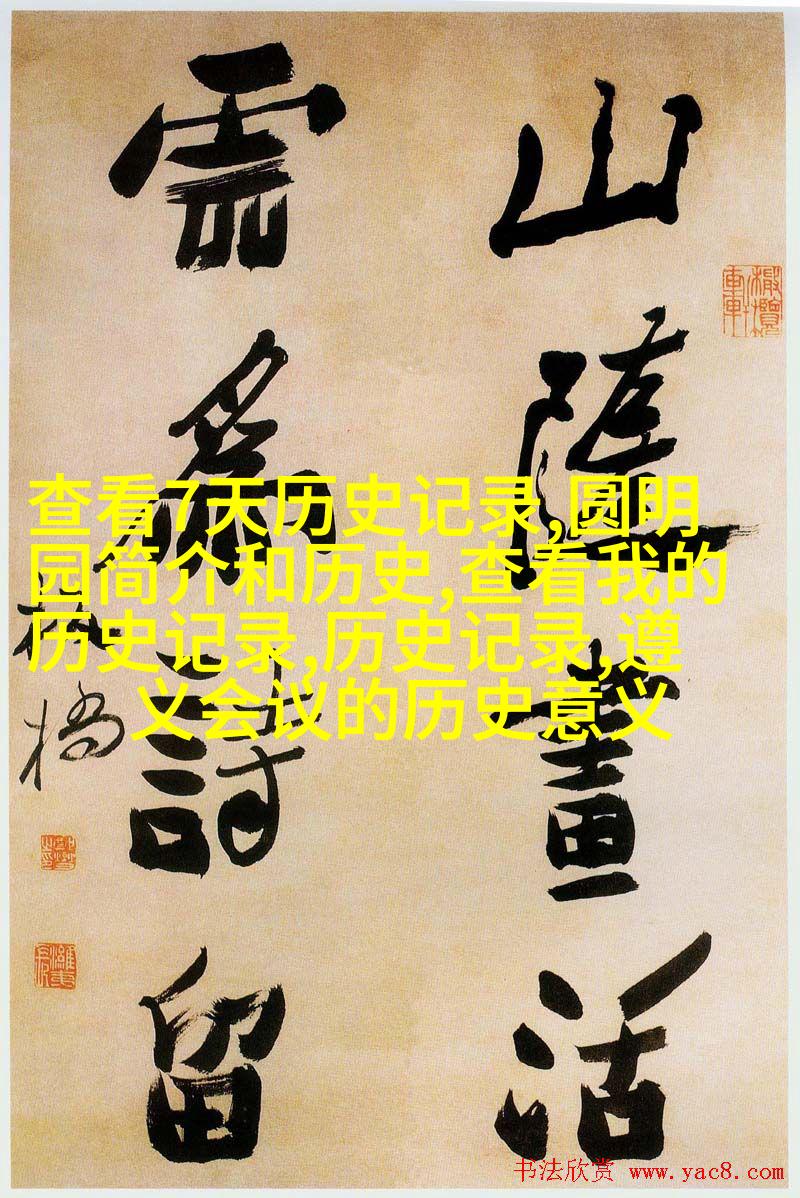 山隨畫活
雲為詩留
板橋
查看7天历史记录,圆明
园简介和历史,查看我的
历史记录,历史记录,遵
义会议的历史意义
书法欣赏 www.yac8.com